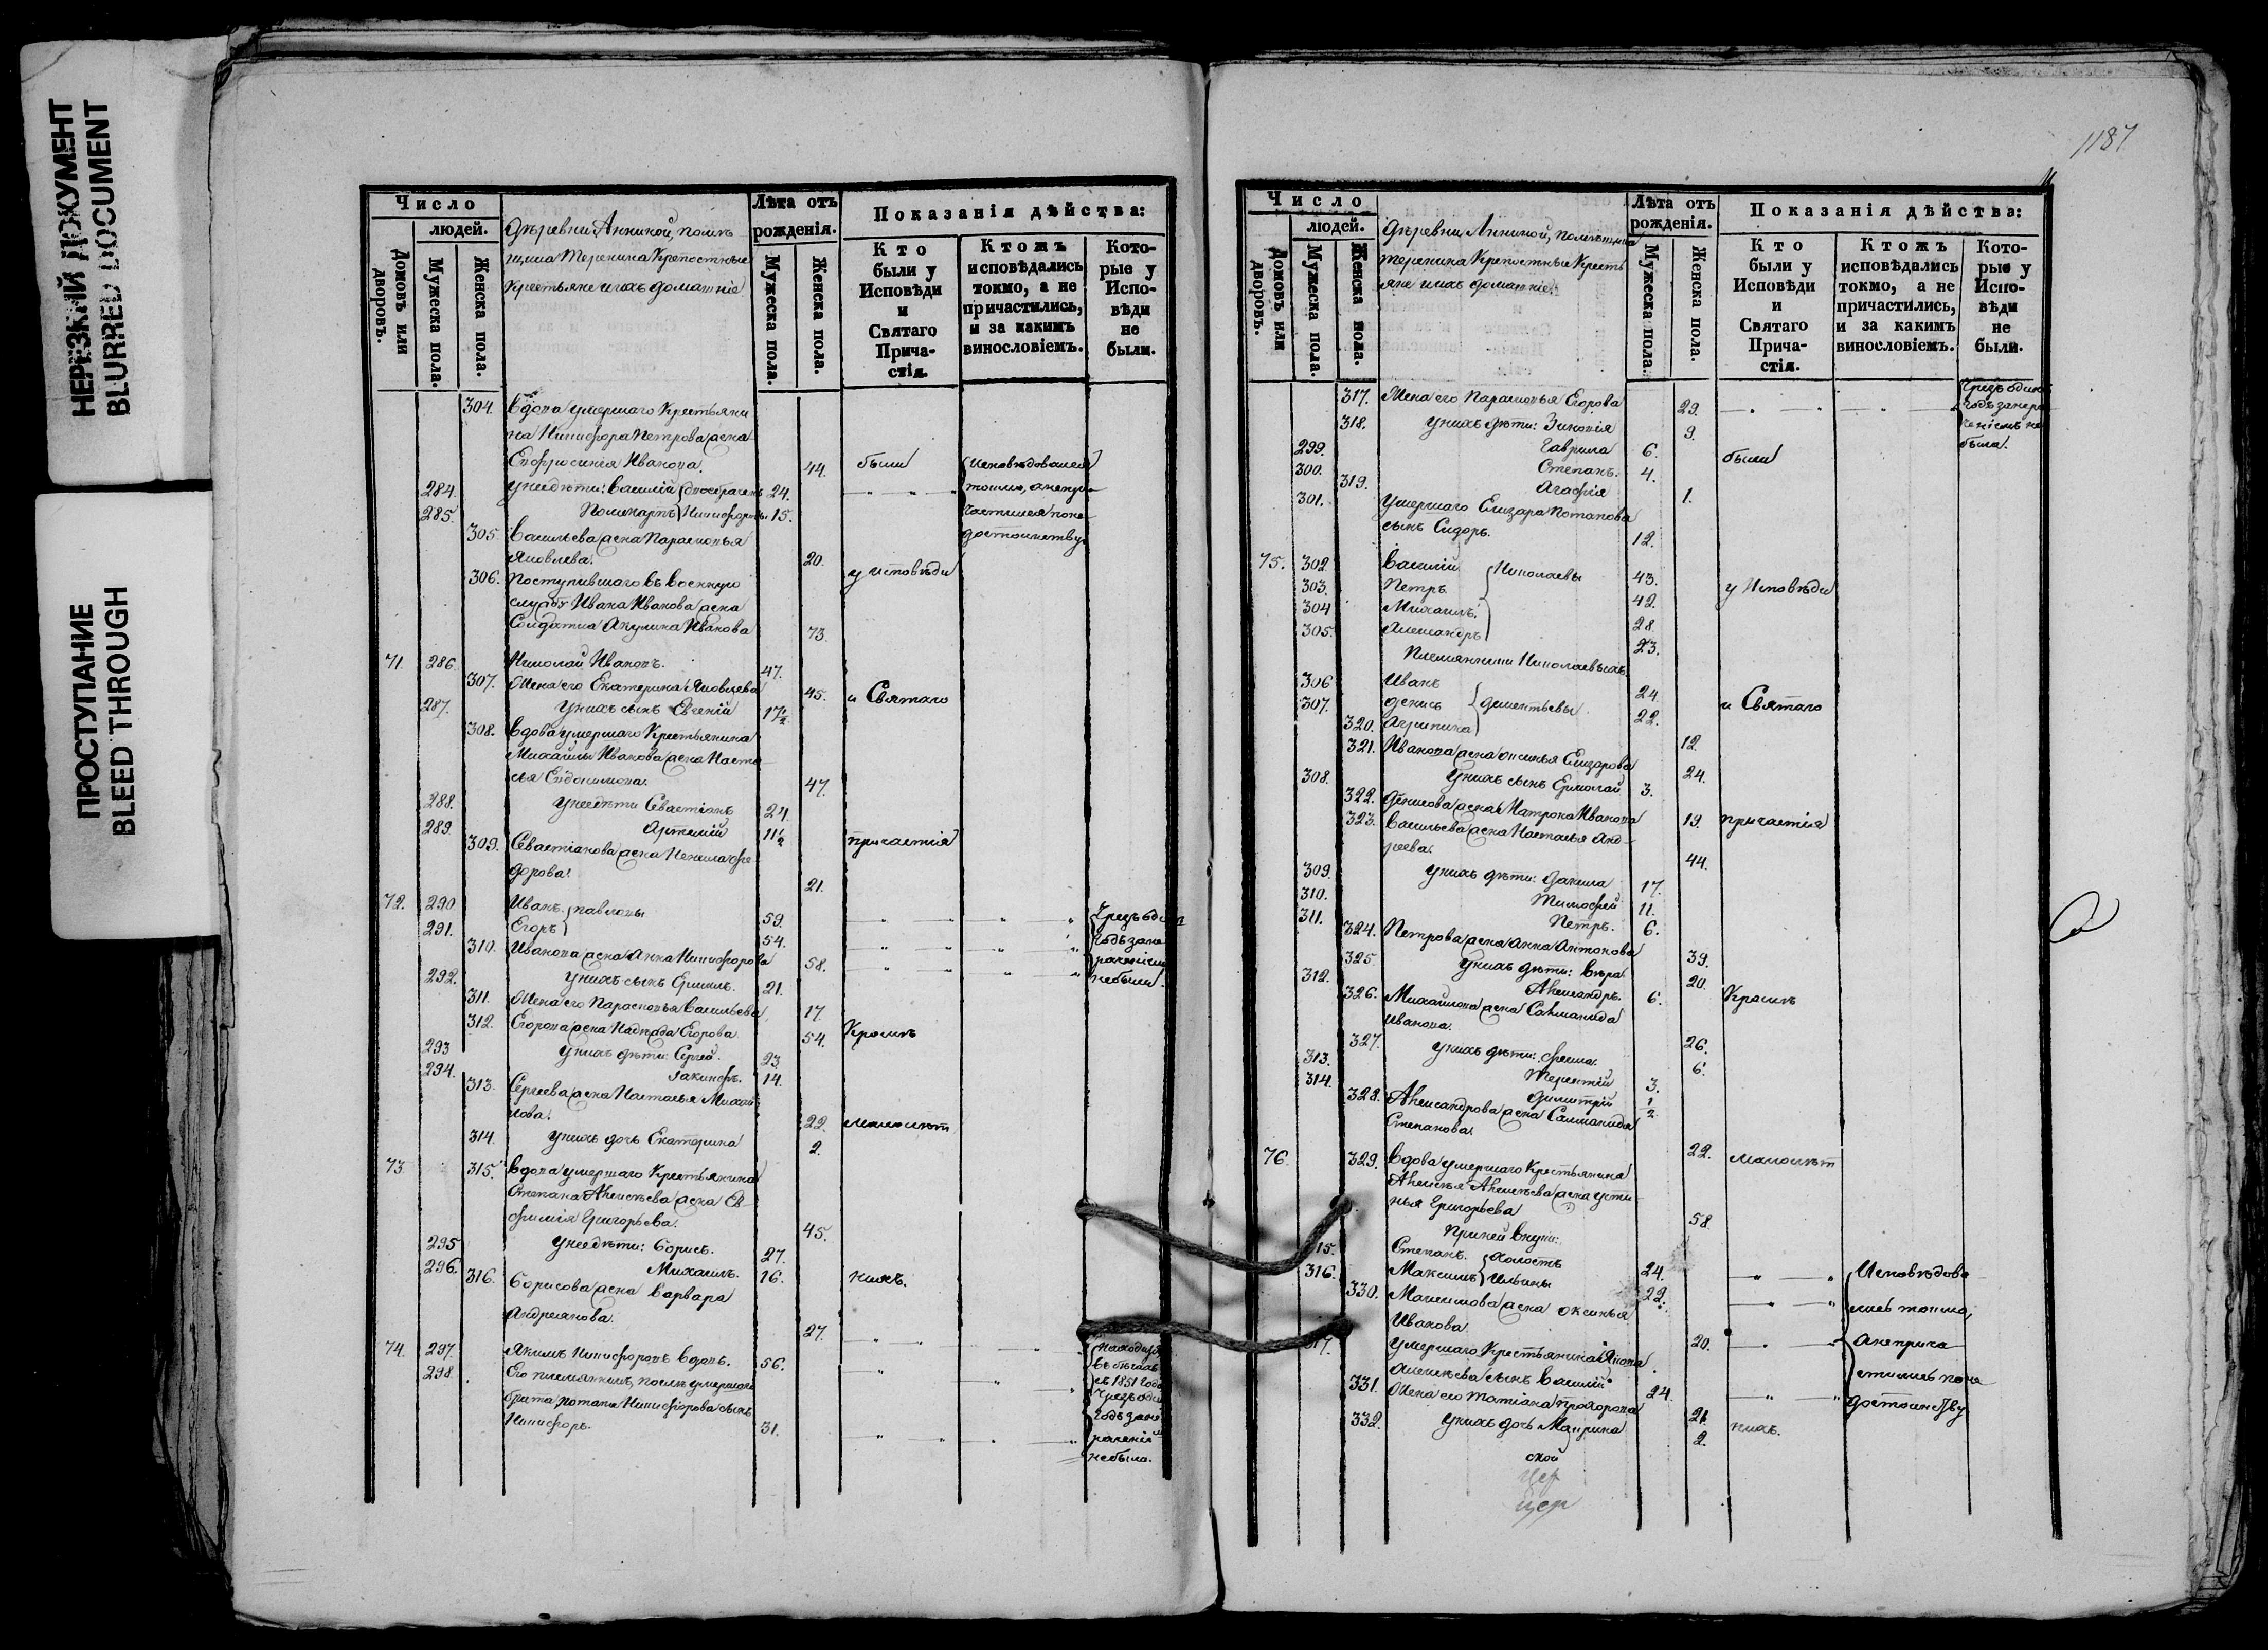 НЕРЕЗКИЙ ДОКУМЕНТ
BLURRED DOCUMENT
ПРОСТУПАНИЕ
BLEED THROUGH
Число
людей.
Домовъ или дворовъ.
Мужеска пола.
Женска пола.
Деревни Анниной, помѣ
щика Теренина Крепостные
крестьяне и ихъ домашніе
Лѣта отъ рожденія.
Мужеска пола.
Женска пола.
Показанія дѣйства:
Кто были у Исповѣди и Святаго Прича- стія.
Ктожъ исповѣдались токмо, а не причастились, и за какимъ винословіемъ.
Кото- рые у Испо- вѣди не были.
304. Вдова умершаго Крестьяни
на Никифора Петрова жена
Евфросинія Иванова. 44. были Исповѣдовался
284. у нее дѣти: Василій 24. токмо, а непри
285. Поликарпъ Никифоровы 15. частился по не
305. Васильева жена Парасковья достоинству
Яковлева. 20.
306. Поступившаго въ военную у исповѣди
службу Ивана Иванова жена
Солдатка Акулина Иванова 73.
71. 286. Николай Ивановъ. 47.
307. Жена его Екатерина Яковлева 45. и Святаго
287. у нихъ сынъ Евгеній 17½
308. Вдова умершаго Крестьянина
Михайлы Иванова жена Наста
сья Евдокимова. 47.
288. у нее дѣти Севастіанъ 24.
289. Артемій 11½
309. Севастіанова жена Ненила Фе причастія
дорова. 21.
72. 290. Иванъ Павловы 59. Чрезъ одинъ
291. Егоръ 54. годъ за не
310. Иванова жена Анна Никифорова 58. раченіемъ
292. у нихъ сынъ Ермилъ. 21. небыли.
311. Жена его Парасковья Васильева 17.
312. Егорова жена Надежда Егорова 54. Кромѣ
293 у нихъ дѣти: Сергей. 23
294. Іакинфъ. 14.
313. Сергеева жена Наталья Михай
лова. 22. малолѣт
314. у нихъ дочь Екатерина 2.
73 315. Вдова умершаго Крестьянина
Степана Алексѣева жена Ев
фимія Григорьева. 45.
295 у нее дѣти: Борисъ. 27.
296. Михаилъ. 16. нихъ.
316. Борисова жена Варвара
Андреянова. 27.
74. 297. Якимъ Никифоровъ вдовъ. 56. въ бѣгахъ
298. Его племянникъ, послѣ умершаго съ 1851 года
брата Потапа Никифорова сынъ Чрезъ одинъ
Никифоръ. 31. годъ за не
раченіемъ
небыли.
1187
Число
людей.
Домовъ или дворовъ.
Мужеска пола.
Женска пола.
Деревни Анниной, помѣщика
Теренина Крепостные Кресть
яне и ихъ домашніе.
Лѣта отъ рожденія.
Мужеска пола.
Женска пола.
Показанія дѣйства:
Кто были у Исповѣди и Святаго Прича- стія.
Ктожъ исповѣдались токмо, а не причастились, и за какимъ винословіемъ.
Кото- рые у Испо- вѣди не были.
317. Жена его Парасковья Егорова 29. Чрезъ одинъ
318. у нихъ дѣти: Зиновія 9. годъ за нера
299. Гаврила 6. были ченіемъ не
300. Степанъ. 4. была.
319. Агафія 1.
301. Умершаго Елизара Потапова
сынъ Сидоръ. 12.
75. 302. Василій Николаевы 43. у Исповѣди
303. Петръ 42.
304 Михаилъ 28.
305. Александръ 23.
Племянники Николаевыхъ
306 Иванъ 24.
307. Денисъ Дементьевы 22. и Святаго
320. Агрипина 12.
321. Иванова жена Аксинья Елизарова 24.
308. у нихъ сынъ Ермолай 3.
322. Денисова жена Матрона Иванова 19. причастія
323. Васильева жена Наталья Анд
реева. 44.
309. у нихъ дѣти: Данила 17.
310. Тимофей 11.
311. Петръ. 6.
324. Петрова жена Анна Антонова 39.
325 у нихъ дѣти: Вѣра 20.
312. Александръ. 6. Кромѣ
326. Михайлова жена Саламанида
Иванова. 26.
327. у нихъ дѣти: 6.
313. Терентій 3.
314. Димитрій ½
328. Александрова жена Саламанида
Степанова. 22. малолѣт
76. 329. Вдова умершаго Крестьянина
Алексѣя Алексѣева жена Усти
нья Григорьева 58.
При ней внуки:
315. Степанъ. холостъ 24. Исповѣдова
316. Максимъ Ильины 22. лись токмо,
330. Максимова жена Оксинья а неприча
Иванова 20. стились по не
317. Умершаго Крестьянина Якова достоинству
Алексѣева сынъ Василій 24.
331. Жена его Татіана Прохорова 21.
332. у нихъ дочь Маврина 2. нихъ.
ской
цер
цер